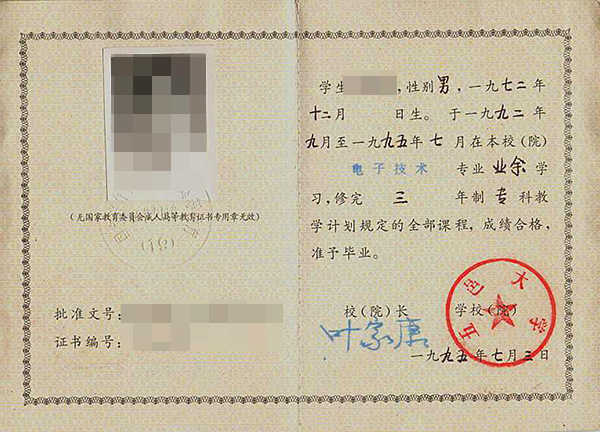 (无国家教育委员会成人高等教育证书专用章无效)
批准文号:
证书编号:
学生 ,性别男,一九七二年
十二月 日生。于一九九二年
九月至一九九五年七月在本校(院)
电子技术 专业业余学
习,修完 三 年制专科教
学计划规定的全部课程,成绩合格,
准予毕业。
校(院)长 学校(院)
叶家康
五邑大学
一九九五年七月三日